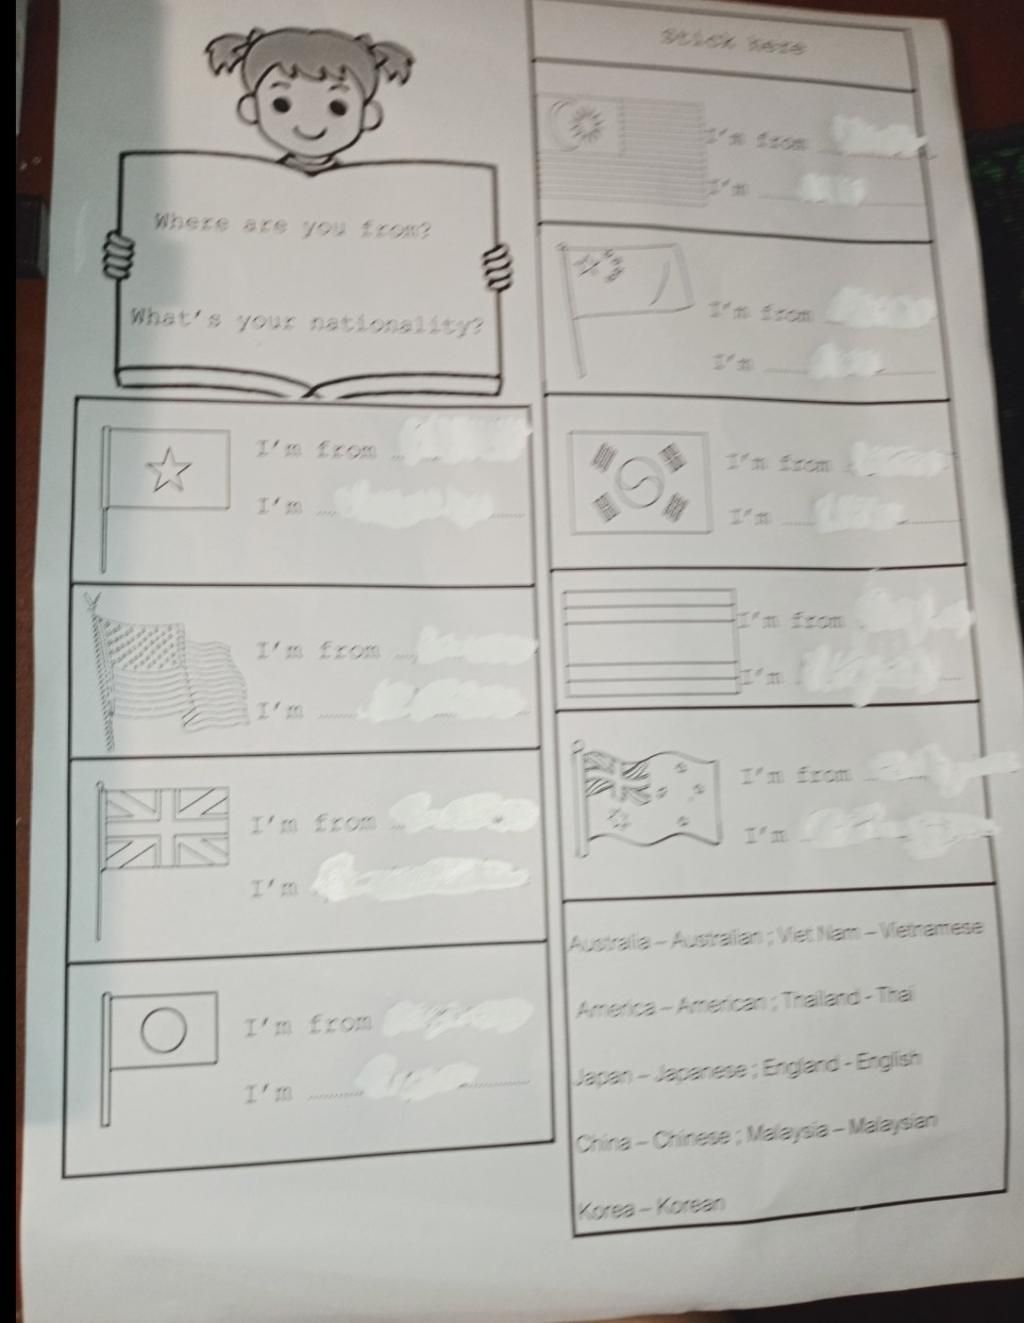 Where are you from?
What's your nationality?
I'm from
I'm
I'm from
I'm
I'm from
I'm
I'm from
I'm
Stick here
I'm from
I'm
I'm from
I'm
I'm from
I'm
I'm from
I'm
I'm from
I'm
Australia – Australian ; Viet Nam – Vietnamese
America – American ; Thailand - Thai
Japan – Japanese ; England - English
China – Chinese ; Malaysia – Malaysian
Korea – Korean